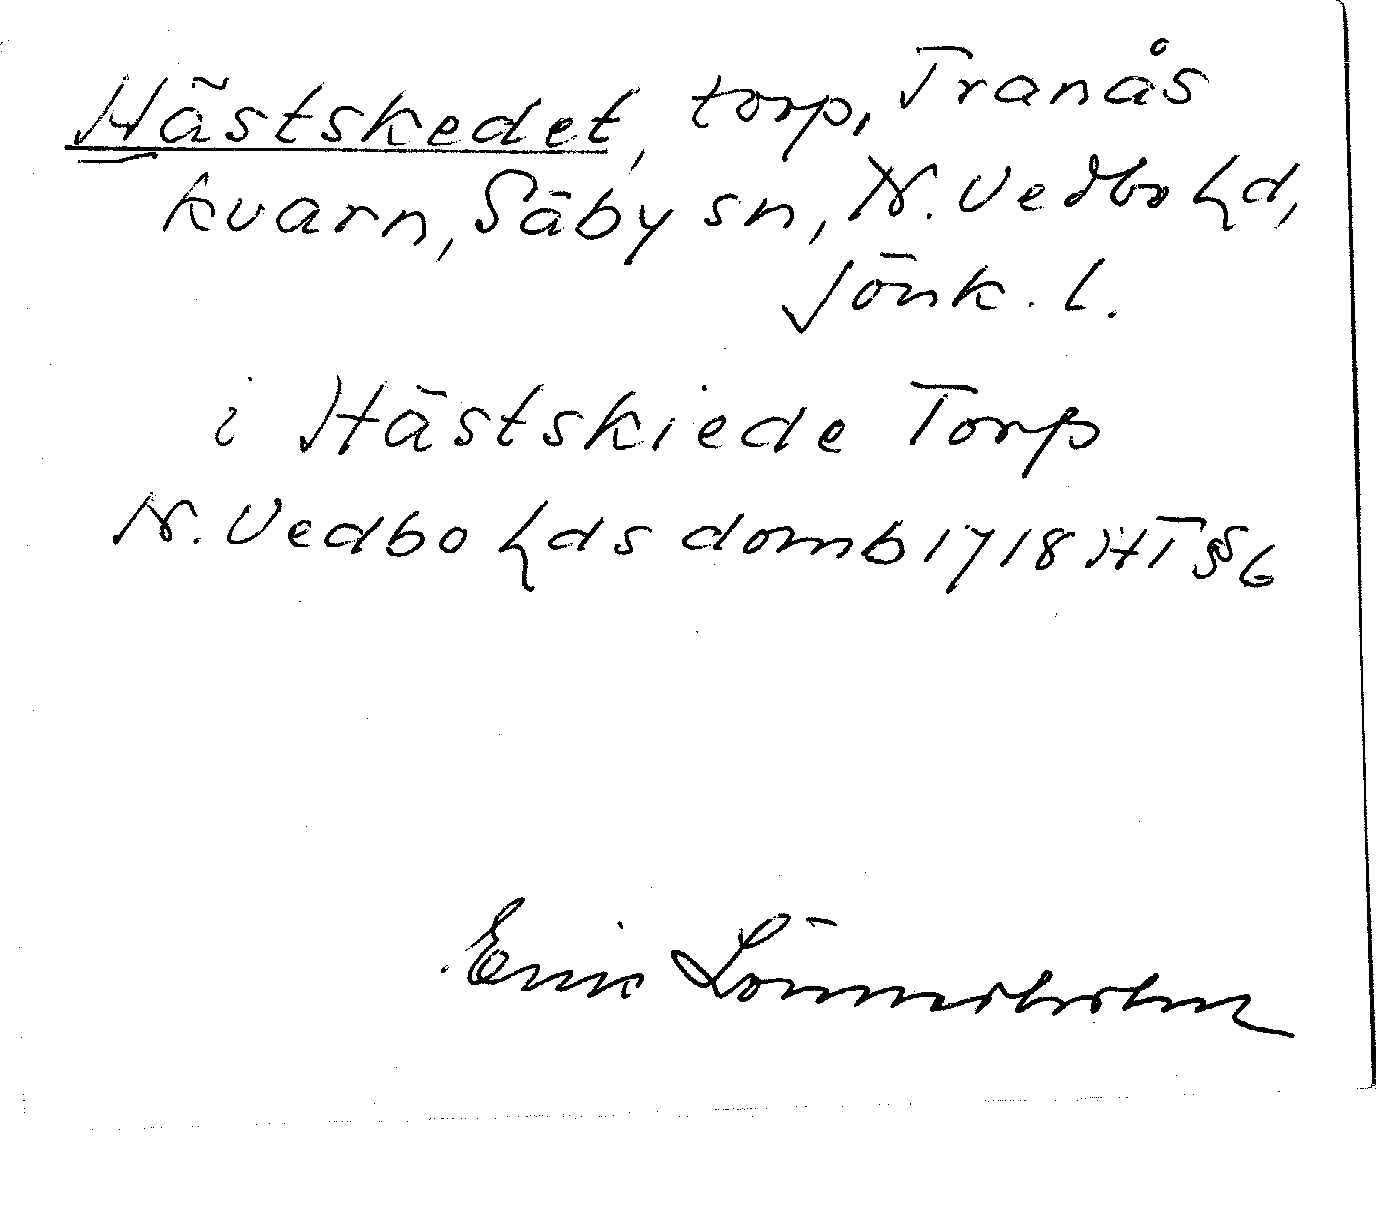 Hästskedet, torp, Tranås
kvarn, Säby sn, N. Vedbo hd,
Jönk. l.
i Hästskiede Torp
N. Vedbo hds domb 1718 HT § 6
Erik Lönnerholm